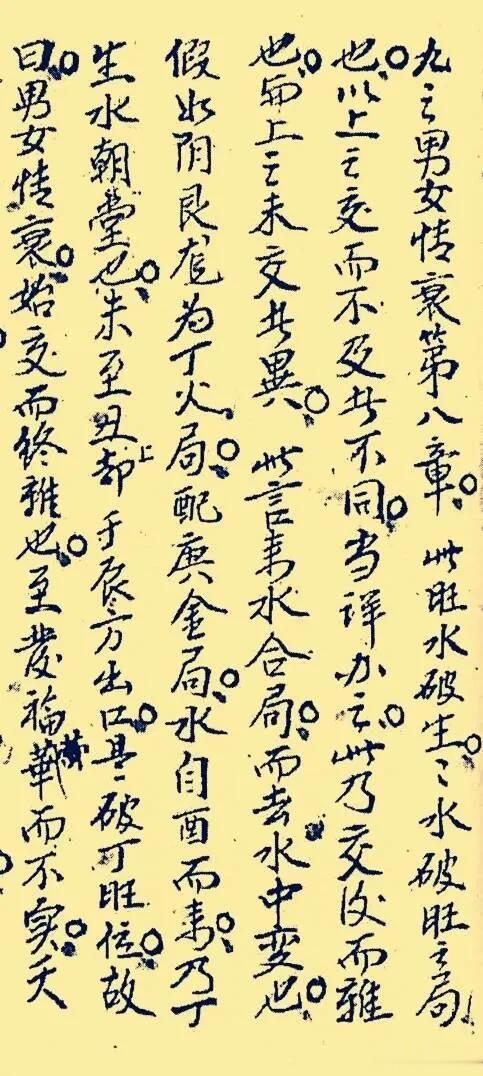 九之男女情衰第八章。此旺水破生。〻水破旺之局
也。以上之交而不及此不同。当详办之。此乃交后而离
也。而上之未交此異。此言来水合局。而去水中变也。
假如阴艮龙为丁火局。配庚金局。水自酉而来。乃丁
生水朝堂也。未至丑却上于辰方出口。是破丁旺位。故
曰男女情衰。始交而终離也。至发福華而不实。夭